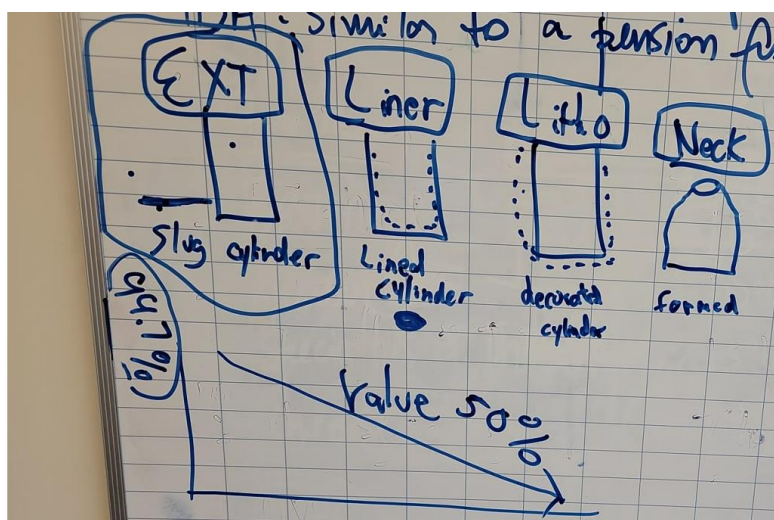 : Similar to a tension
EXT Liner Litho Neck
Slug cylinder
Lined
cylinder
decorated
cylinder
formed
99.7%
Value 50%